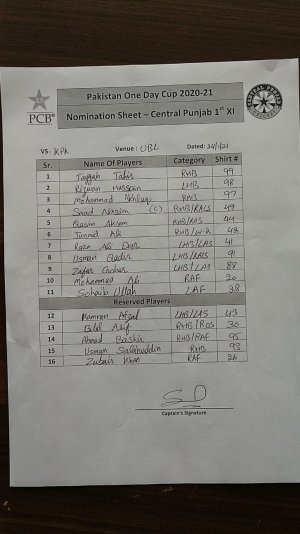 Pakistan One Day Cup 2020-21
PCB
Nomination Sheet – Central Punjab 1st XI
VS: KPK Venue: UBL Dated: 24/1/21
Sr. Name Of Players Category Shirt #
1 Tayyab Tahir RHB 99
2 Rizwan Hussain LHB 98
3 Mohammad Akhlaq RHB 97
4 Saad Nasim (C) RHB/RALS 49
5 Qasim Akram RHB/ROS
6 Junaid Ali RHB/W.K 48
7 Raza Ali Dar LHB/LAS 41
8 Usman Qadir LHB/RALS 91
9 Zafar Gohar LHB/LAS 88
10 Mohammad Ali RAF 20
11 Sohaib Ullah LAF 38
Reserved Players
12 Kamran Afzal LHB/LAS 43
13 Bilal Asif RHB/ROS 30
14 Ahmad Bashir RHB/RAF 95
15 Usman Salahuddin RHB 93
16 Zubair Khan RAF 26
Captain's Signature